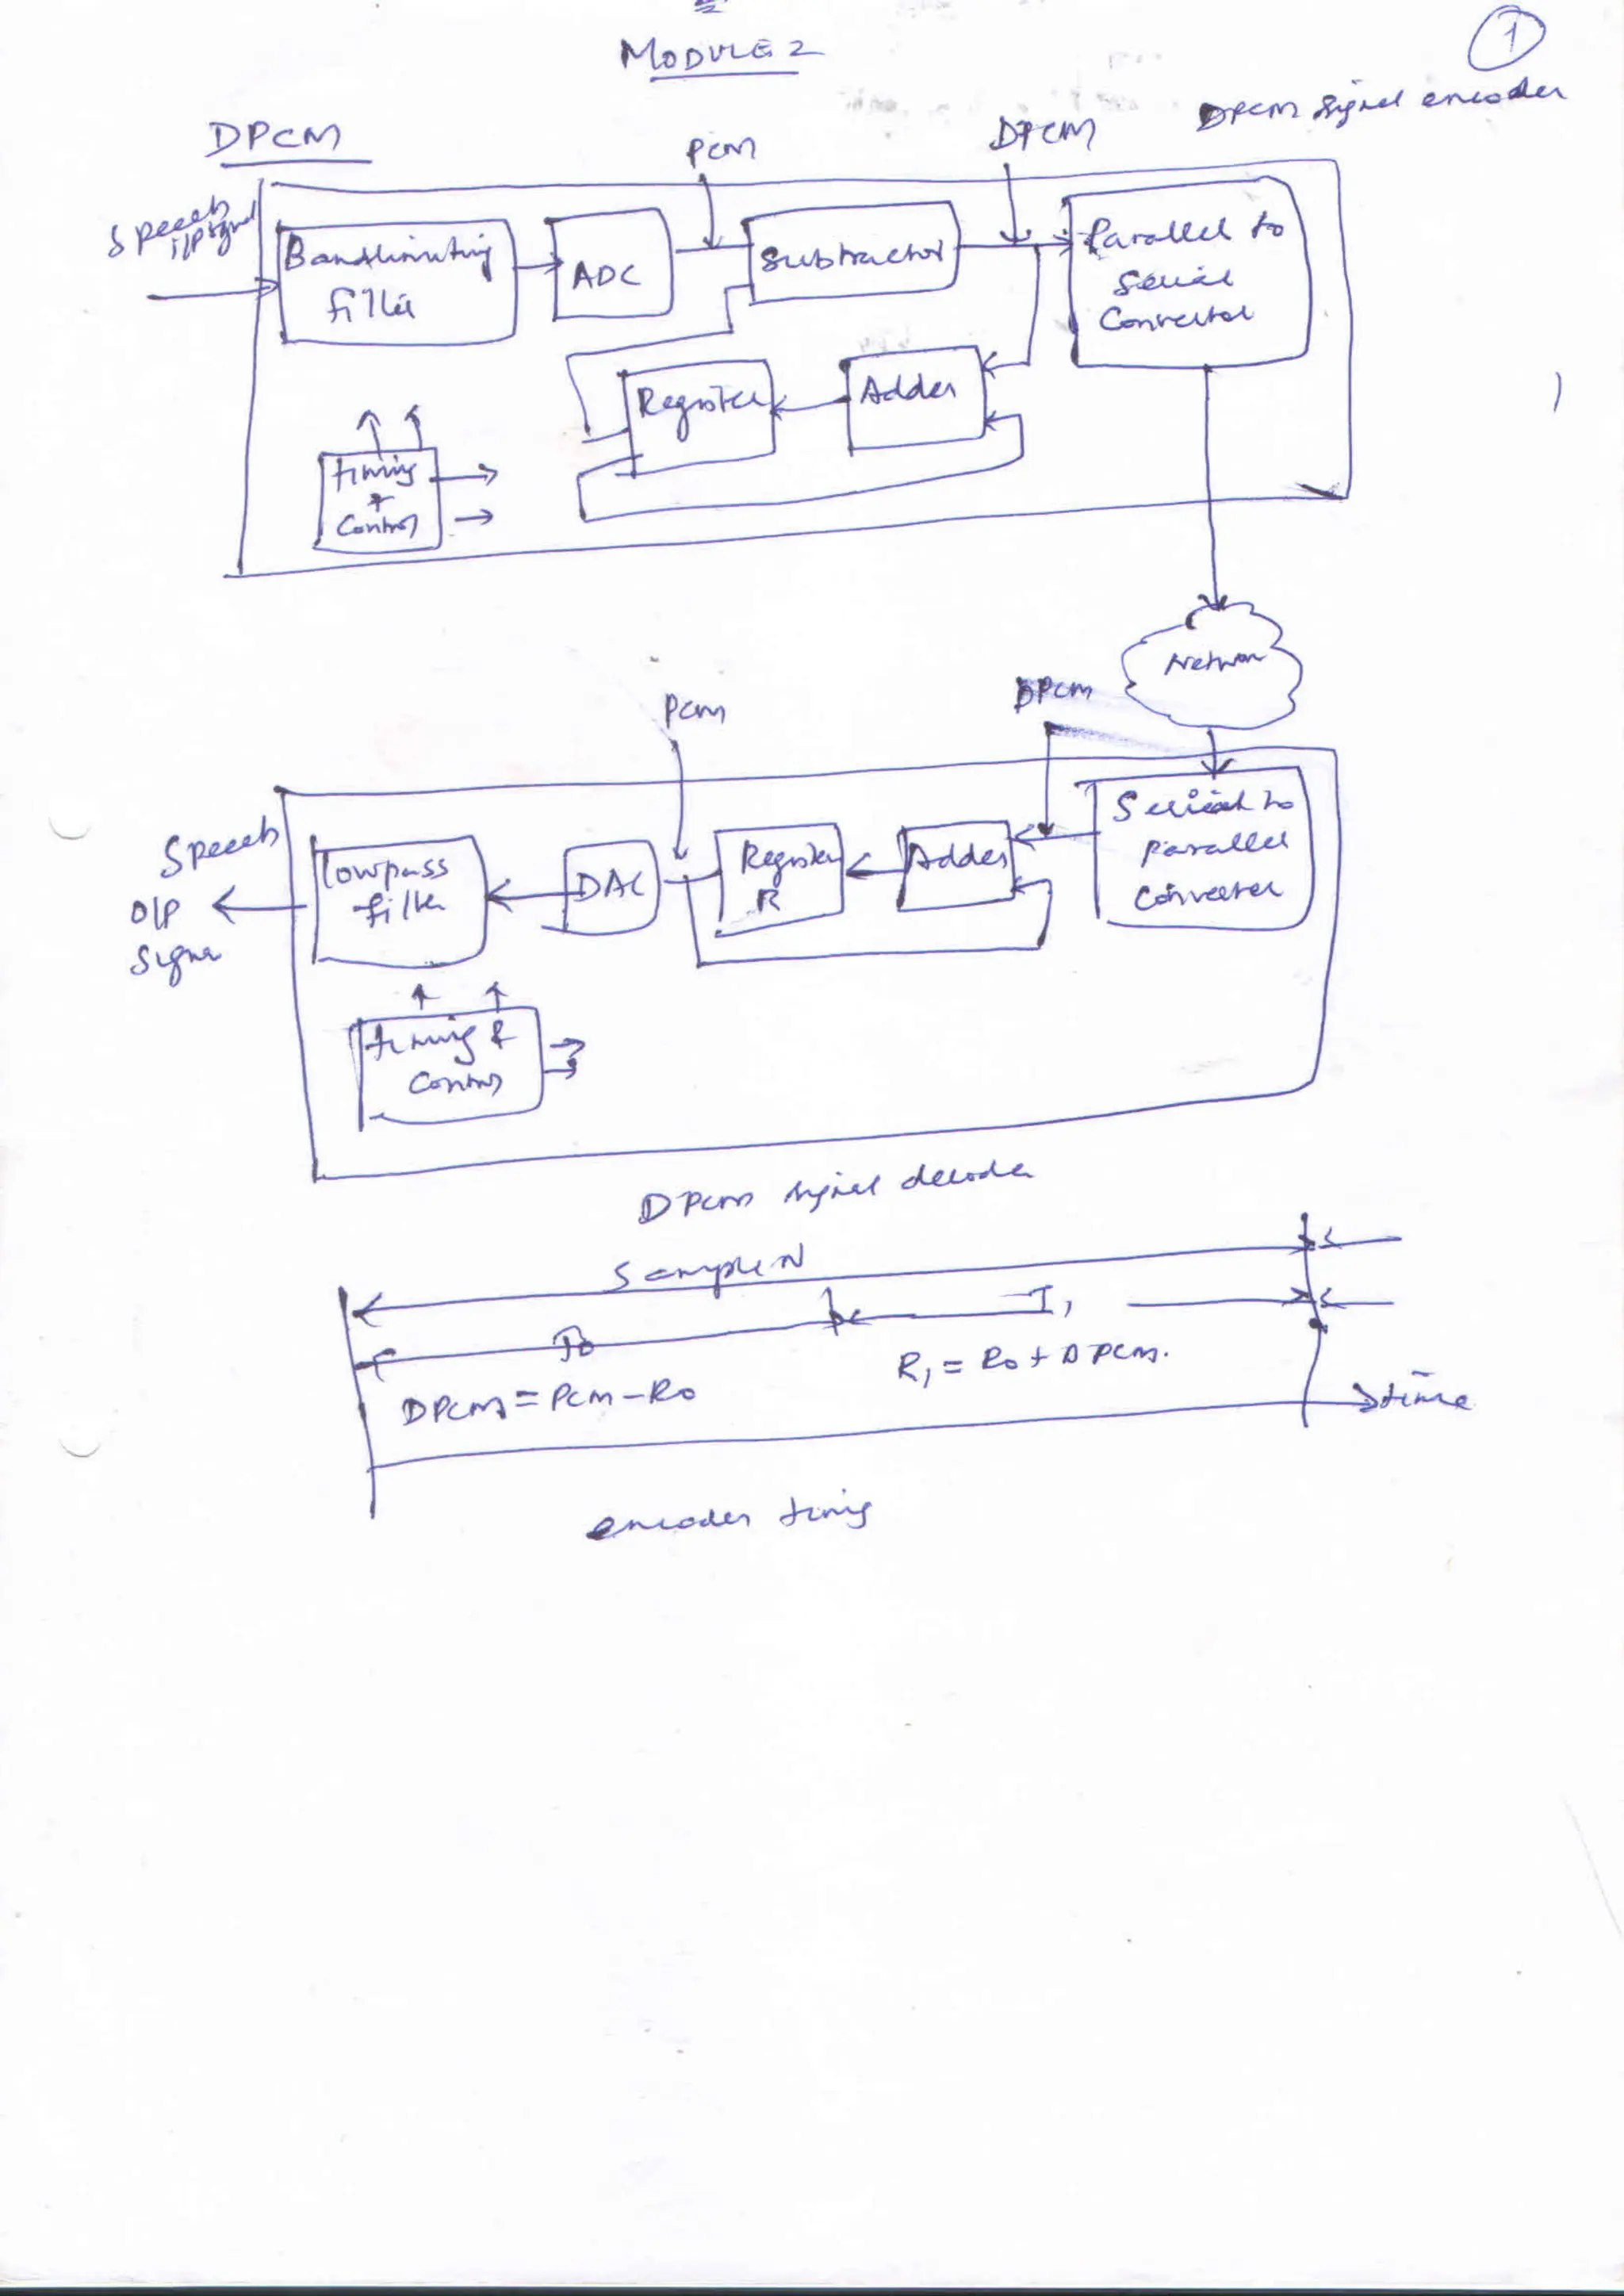 MODULE 2
1
DPCM
PCM
DPCM
DPCM signal encoder
Speech
i/p signal
Bandlimiting
filter
ADC
Subtractor
Parallel to
Serial
Convertor
Register
Adder
timing
+
Control
Network
PCM
DPCM
Speech
O/P
Signal
lowpass
filter
DAC
Register
R
Adder
Serial to
parallel
Converter
timing &
Control
DPCM signal decoder
Sample N
T0
T1
DPCM = PCM - R0
R1 = R0 + DPCM.
time
encoder timing